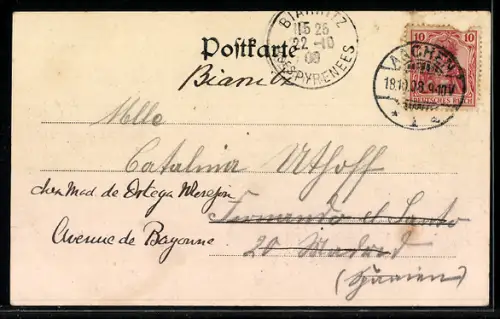 BIARRITZ
11 5 26
22 -10
00
BSES PYRENEES
Postkarte
Biarritz
10 10
AACHEN
18.10.08. 9-10V
DEUTSCHES REICH
* 1 a
Mlle
Catalina Uthoff
chez Mad de Ortega Morejon
Fernando el Santo
Avenue de Bayonne
20 Madrid
(Spanien)